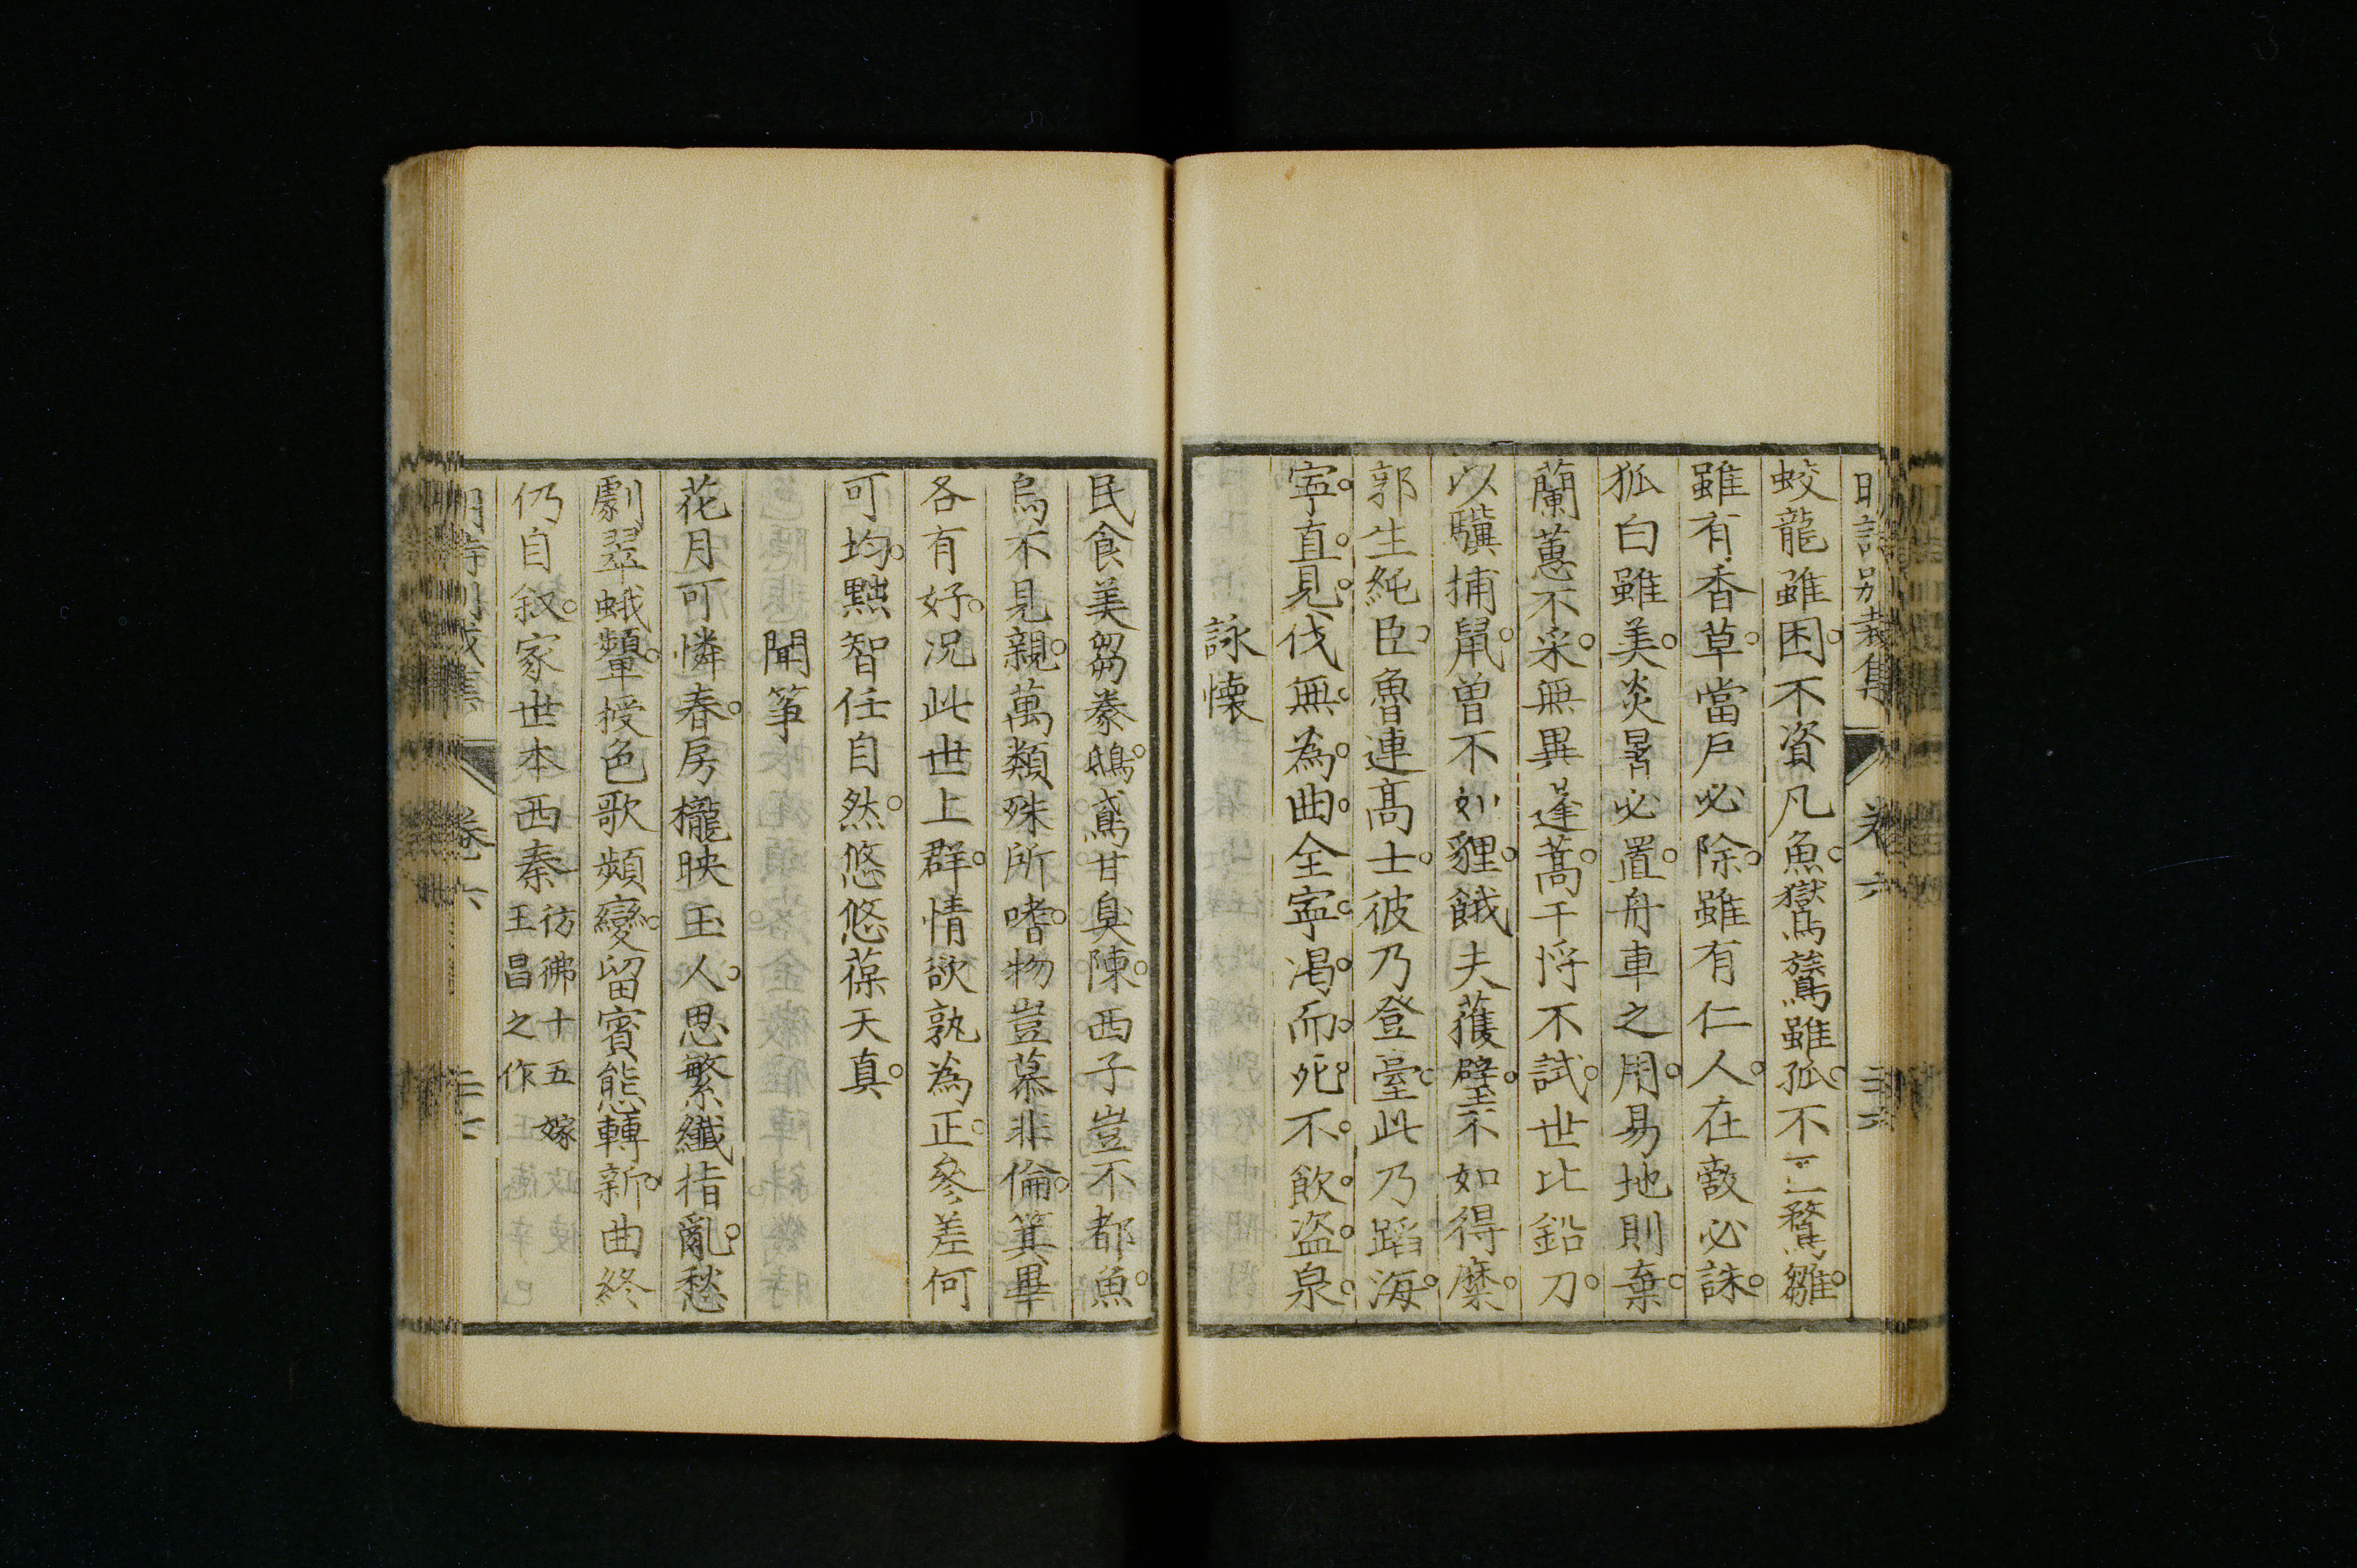 蛟龍雖困不資凡魚鸑鷟雖孤不匹鶩雛
雖有香草當戶必除雖有仁人在敵必誅
狐白雖美炎暑必置舟車之用易地則棄
蘭蕙不采無異蓬蒿干將不試世比鉛刀
以驥捕鼠曾不如貍餓夫獲璧不如得糜
郭生純臣魯連高士彼乃登臺此乃蹈海
寧直見伐無為曲全寧渴而死不飲盜泉
詠懷
民食美芻豢鴟鳶甘臭陳西子豈不都魚
鳥不見親萬類殊所嗜物豈慕非倫箕畢
各有好況此世上群情欲孰為正參差何
可均黜智任自然悠悠葆天真
聞箏
花月可憐春房櫳映玉人思繁纖指亂愁
劇翠蛾顰授色歌頻變留賓態轉新曲終
仍自敘家世本西秦彷彿十五嫁
王昌之作
卷六